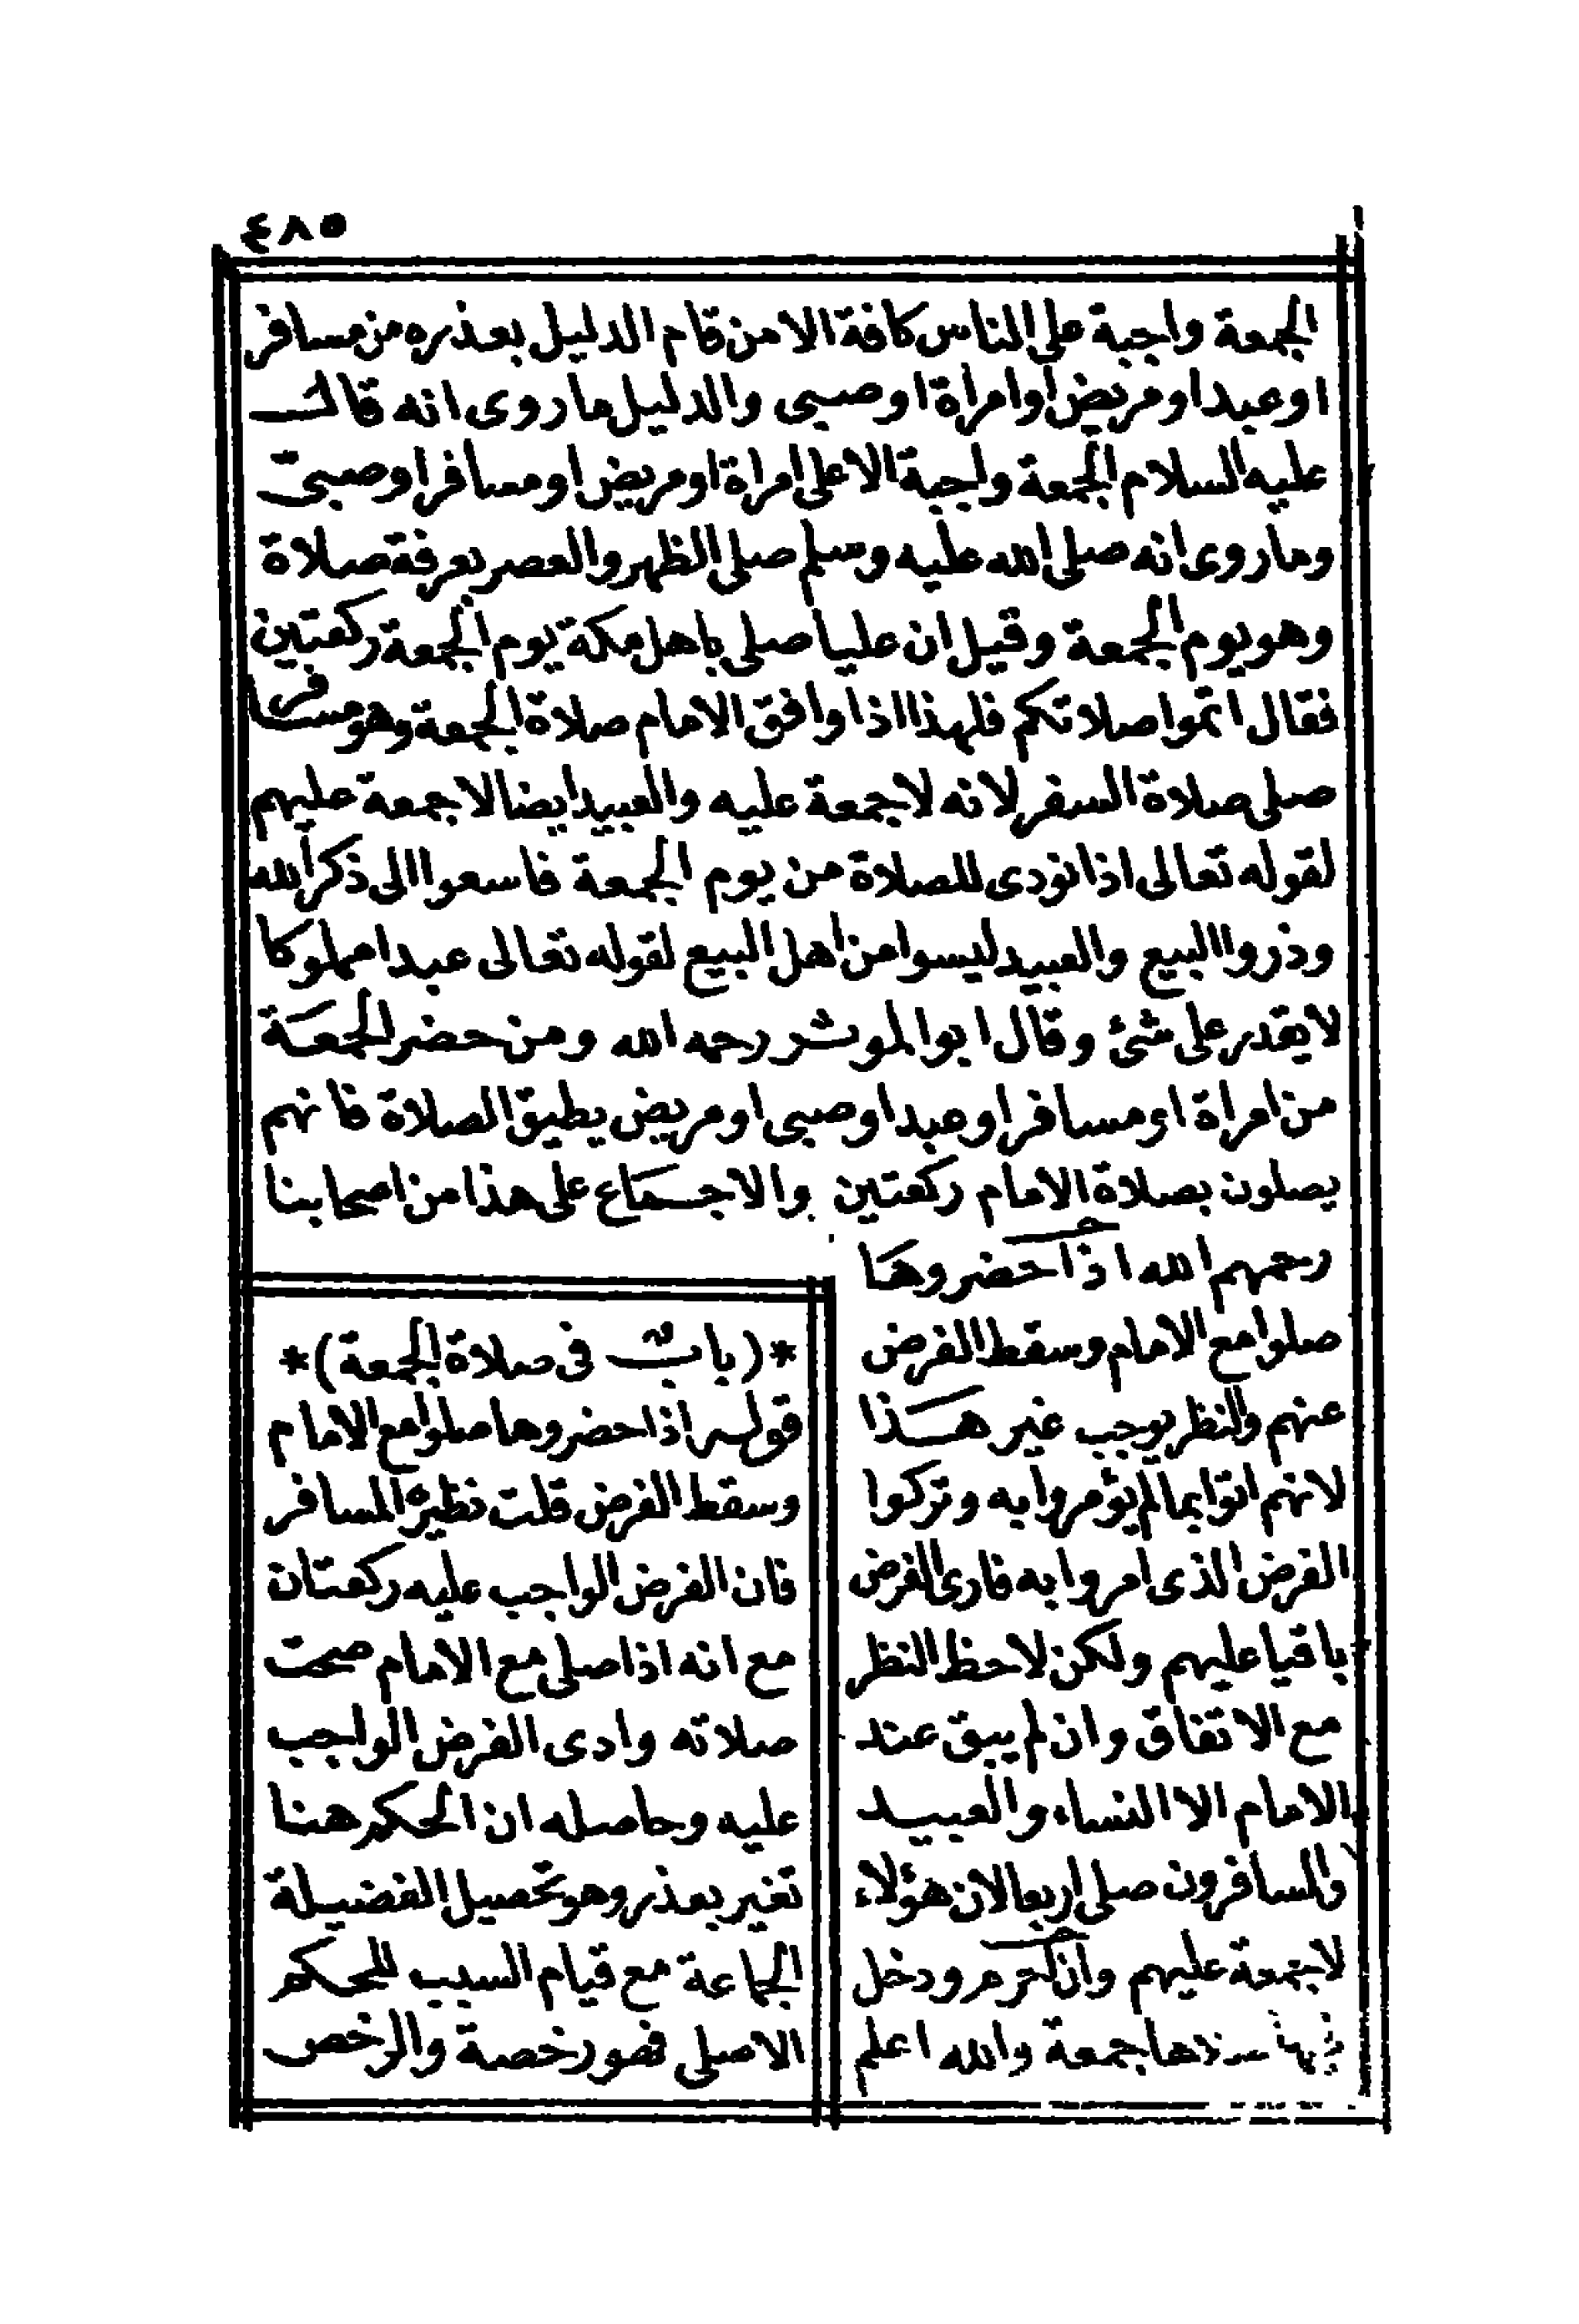 ٤٨٥
الجمعة واجبة على الناس كافة الا من قام الدليل بعذره من مسافر
او عبد او مريض او امراة او صبى والدليل ما روى انه قال
عليه السلام الجمعة واجبة الا على امراة او مريض او مسافر او صبى
وما روى انه صلى الله عليه وسلم صلى الظهر والعصر بعرفة صلاة
وهو يوم الجمعة وقيل ان عليا صلى باهل مكة يوم الجمعة ركعتين
فقال اتموا صلاتكم فلهذا اذا وافق الامام صلاة الجمعة وهو مسافر
صلى صلاة السفر لانه لا جمعة عليه والعبيد ايضا لا جمعة عليهم
لقوله تعالى اذا نودى للصلاة من يوم الجمعة فاسعوا الى ذكر الله
وذروا البيع والعبيد ليسوا من اهل البيع لقوله تعالى عبدا مملوكا
لا يقدر على شئ وقال ابو الموثر رحمه الله ومن حضر الجمعة
من امراة او مسافر او عبد او صبى او مريض يطيق الصلاة فانهم
يصلون بصلاة الامام ركعتين والاجماع على هذا من اصحابنا
رحمهم الله اذا حضروها
صلوا مع الامام وسقط الفرض
عنهم والنظر يوجب غير هذا
لانهم اتوا بما لم يؤمروا به وتركوا
الفرض الذى امروا به فارى الفرض
باقيا عليهم ولكن لاحظ النظر
مع الاتفاق وان لم يبق عند
الامام الا النساء والعبيد
والمسافرون صلى اربعا لان هؤلاء
لا جمعة عليهم وان احرم ودخل
جمعة والله اعلم
*(باب فى صلاة الجمعة)*
قوله اذا حضروها صلوا مع الامام
وسقط الفرض قلت نظيره المسافر
فان الفرض الواجب عليه ركعتان
مع انه اذا صلى مع الامام صحت
صلاته وادى الفرض الواجب
عليه وحاصله ان الحكم هنا
تغير بعذر وهو تحصيل الفضيلة
الجماعة مع قيام السبب للحكم
الاصلى فهو رخصة والرخص